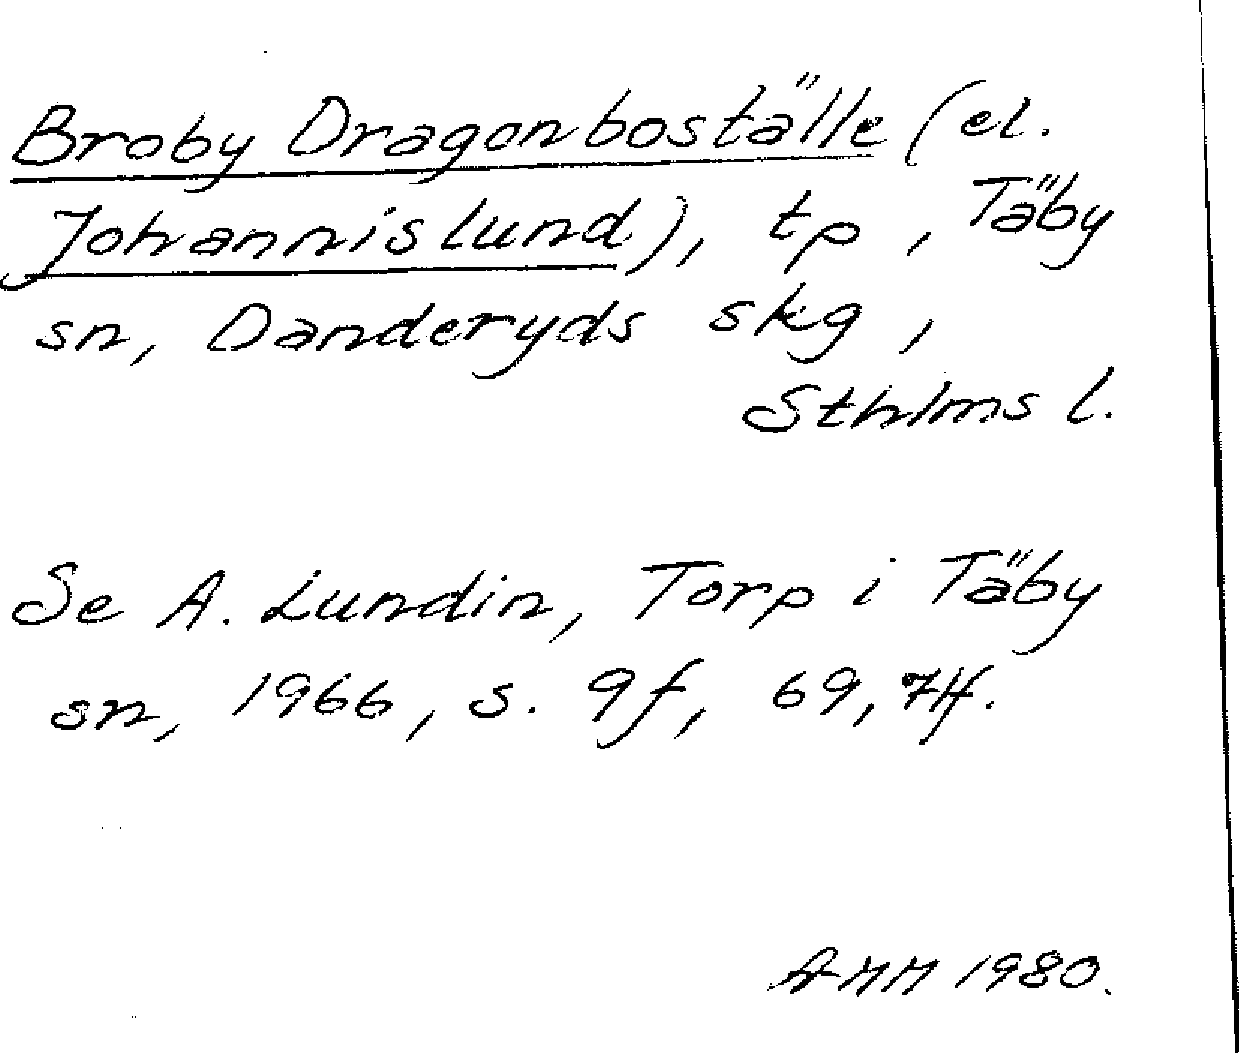 Broby Dragonboställe (el.
Johannislund), tp, Täby
sn, Danderyds skg,
Sthlms l.
Se A. Lundin, Torp i Täby
sn, 1966, s. 9f, 69, 74f.
AMM 1980.